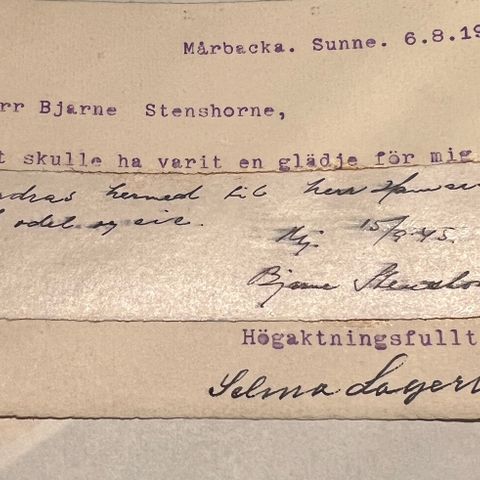 Mårbacka. Sunne. 6.8.19
rr Bjarne Stenshorne,
t skulle ha varit en glädje för mig
hermed til herr
odel og eie.
15/9-45.
Bjarne Stensho
Högaktningsfullt
Selma Lagerl